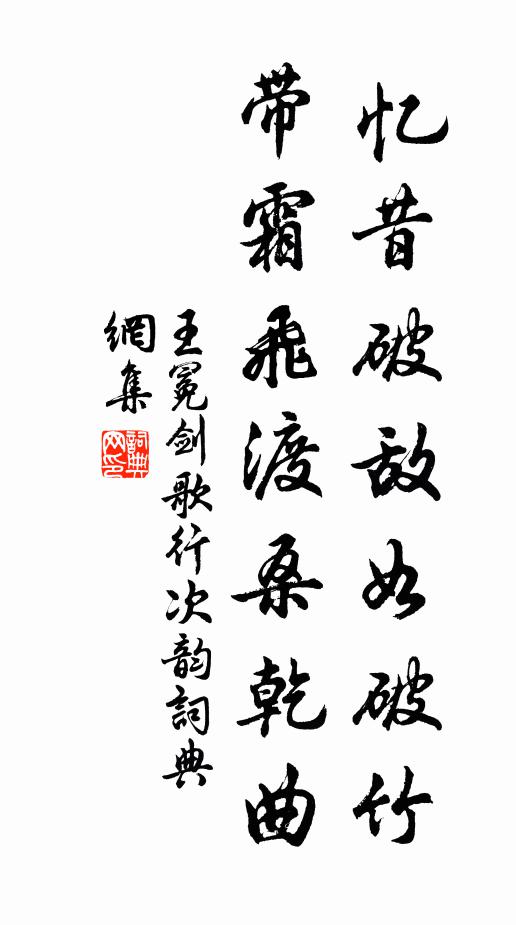 忆昔破敌如破竹
带霜飛渡桑乾曲
王冕剑歌行次韵詞典
網集
詞典
网印